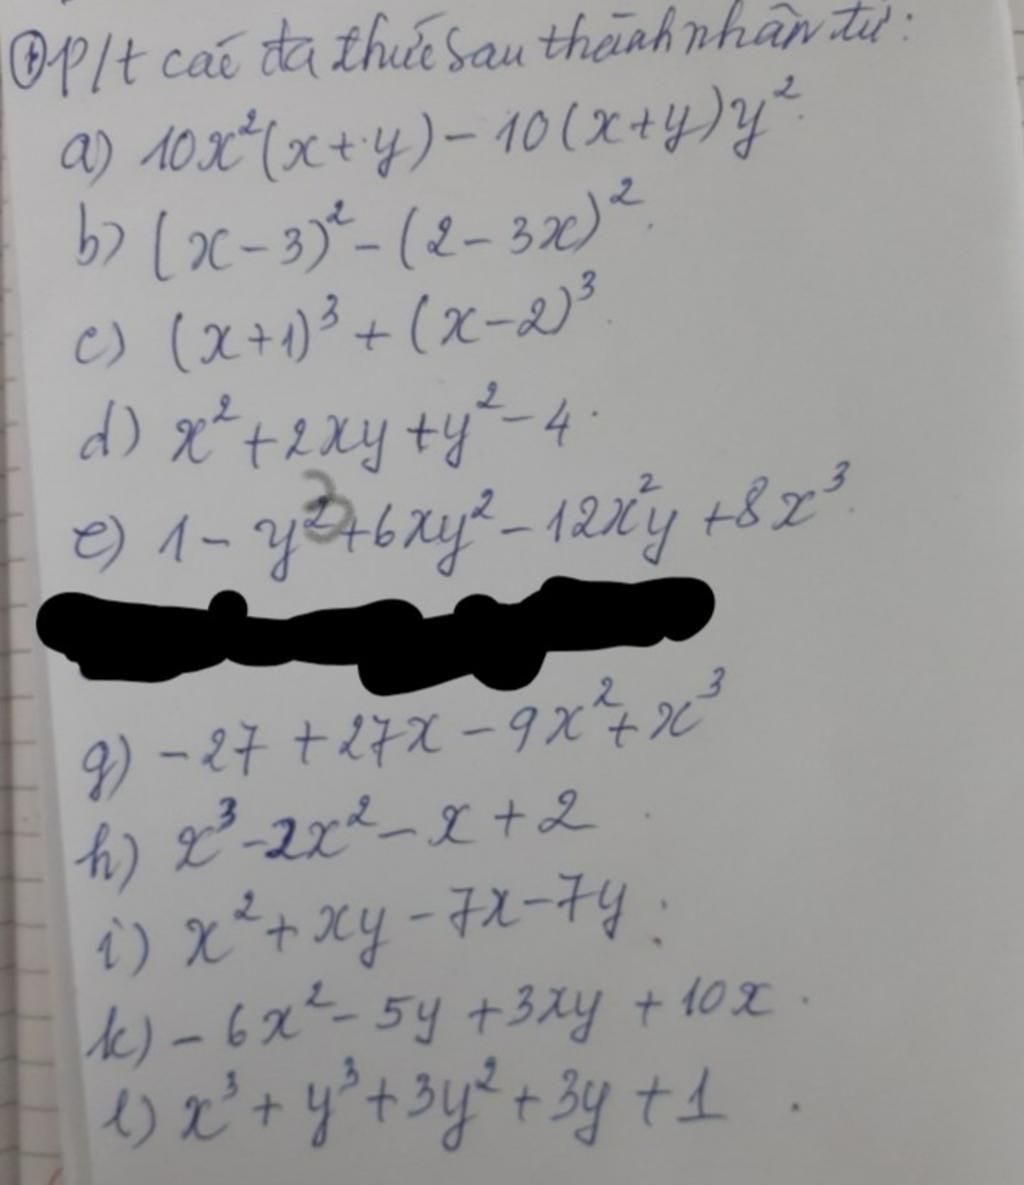 ① P/t các đa thức sau thành nhân tử:
a) 10x²(x+y) - 10(x+y)y²
b) (x-3)² - (2-3x)²
c) (x+1)³ + (x-2)³
d) x² + 2xy + y² - 4
e) 1 - y³ + 6xy² - 12x²y + 8x³
g) -27 + 27x - 9x² + x³
h) x³ - 2x² - x + 2
i) x² + xy - 7x - 7y
k) -6x² - 5y + 3xy + 10x
l) x³ + y³ + 3y² + 3y + 1